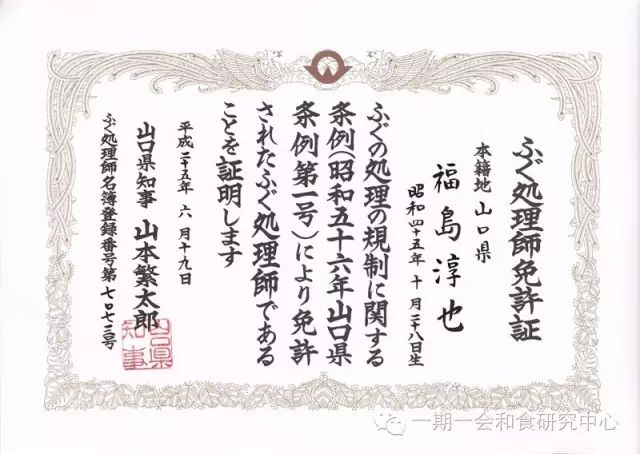 ふぐ処理師免許証
本籍地 山口県
福島淳也
昭和四十五年 十月二十八日生
ふぐの処理の規制に関する
条例(昭和五十六年山口県
条例第一号)により免許
されたふぐ処理師である
ことを証明します
平成二十五年 六月十九日
山口県知事 山本繁太郎
ふぐ処理師名簿登録番号第 七〇七三号
山口県
知事
一期一会和食研究中心